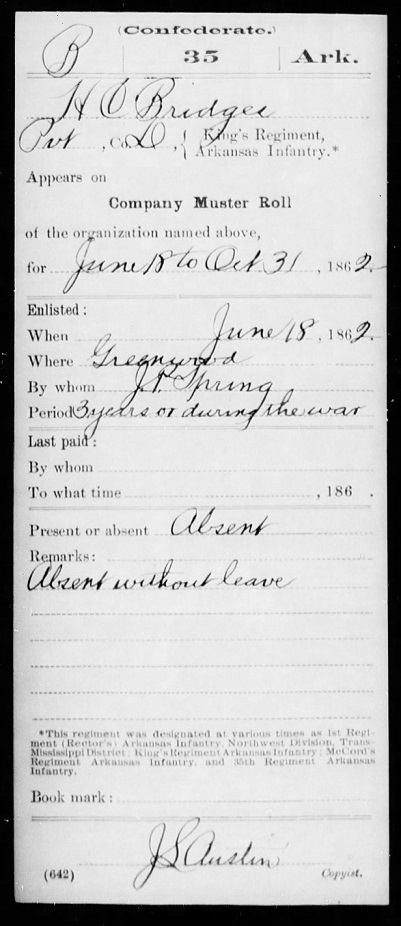 (Confederate.)
B | 35 | Ark.
H C Bridges
Pvt, Co. D, { King's Regiment,
Arkansas Infantry.*
Appears on
Company Muster Roll
of the organization named above,
for June 18 to Oct 31, 1862.
Enlisted:
When June 18, 1862.
Where Greenwood
By whom J. F. Spring
Period 3 years or during the war
Last paid:
By whom
To what time , 186 .
Present or absent Absent
Remarks:
Absent without leave
*This regiment was designated at various times as 1st Regi-
ment (Rector's) Arkansas Infantry, Northwest Division, Trans-
Mississippi District; King's Regiment Arkansas Infantry; McCord's
Regiment Arkansas Infantry, and 35th Regiment Arkansas
Infantry.
Book mark:
J S Austin
(642) Copyist.